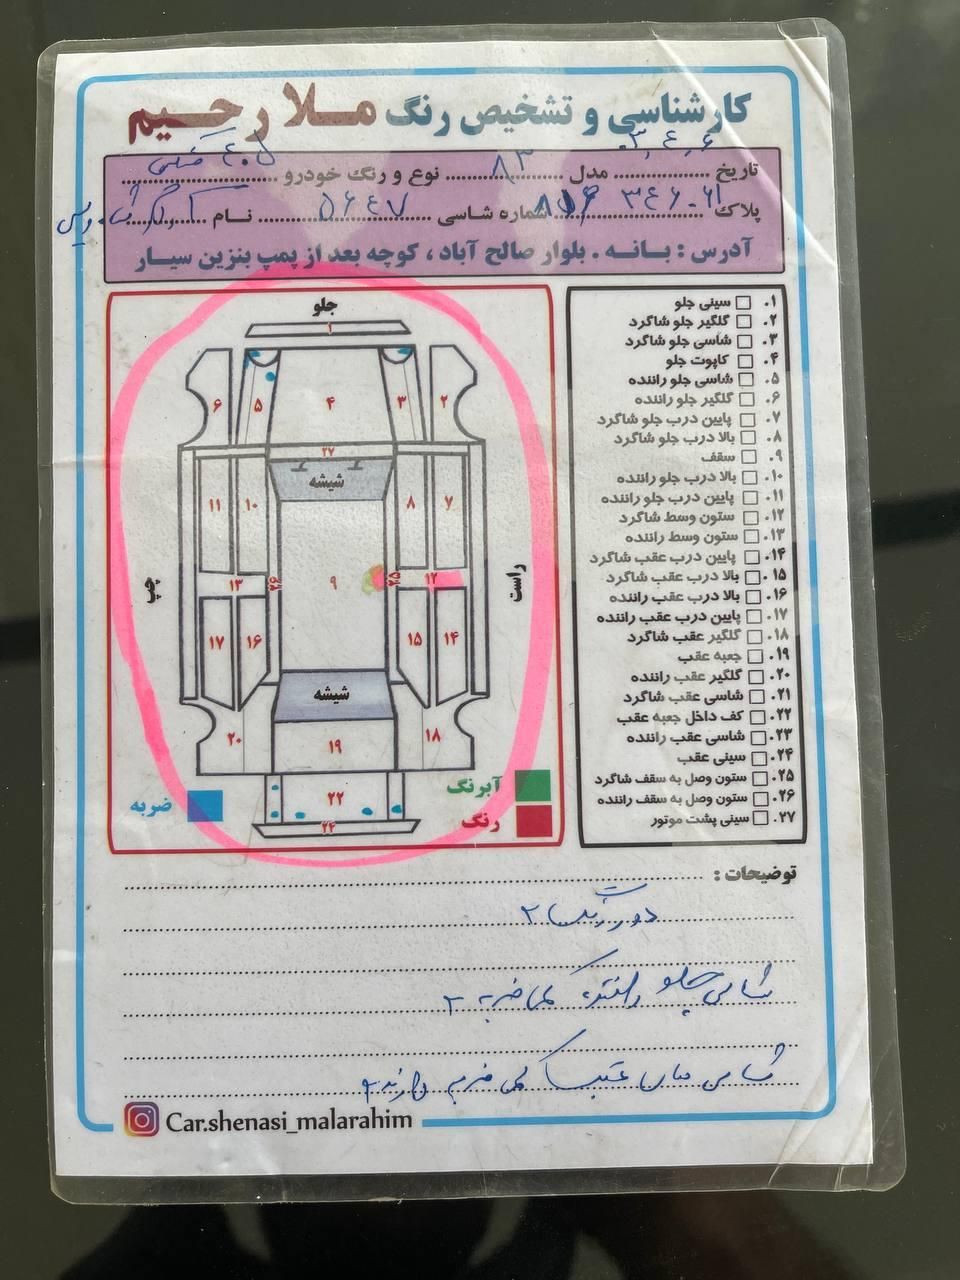 کارشناسی و تشخیص رنگ ملا رحیم
تاریخ ۰۳,۴,۶ مدل ۸۳ نوع و رنگ خودرو ۴۰۵
پلاک شماره شاسی ۵۶۴۷ نام
آدرس : بانه . بلوار صالح آباد ، کوچه بعد از پمپ بنزین سیار
۱. سینی جلو
۲. گلگیر جلو شاگرد
۳. شاسی جلو شاگرد
۴. کاپوت جلو
۵. شاسی جلو راننده
۶. گلگیر جلو راننده
۷. پایین درب جلو شاگرد
۸. بالا درب جلو شاگرد
۹. سقف
۱۰. بالا درب جلو راننده
۱۱. پایین درب جلو راننده
۱۲. ستون وسط شاگرد
۱۳. ستون وسط راننده
۱۴. پایین درب عقب شاگرد
۱۵. بالا درب عقب شاگرد
۱۶. بالا درب عقب راننده
۱۷. پایین درب عقب راننده
۱۸. گلگیر عقب شاگرد
۱۹. جعبه عقب
۲۰. گلگیر عقب راننده
۲۱. شاسی عقب شاگرد
۲۲. کف داخل جعبه عقب
۲۳. شاسی عقب راننده
۲۴. سینی عقب
۲۵. ستون وصل به سقف شاگرد
۲۶. ستون وصل به سقف راننده
۲۷. سینی پشت موتور
جلو
۱
۲ ۳ ۴ ۵ ۶
۲۷
شیشه
۷ ۸ ۱۰ ۱۱
راست ۱۲ ۲۵ ۹ ۲۶ ۱۳ چپ
۱۴ ۱۵ ۱۶ ۱۷
شیشه
۱۸ ۱۹ ۲۰
آبرنگ ۲۲ ضربه
رنگ ۲۴
توضیحات :
دور رنگ
شاسی جلو راننده کمی ضربه
شاسی عقب کمی ضربه دارند
Car.shenasi_malarahim